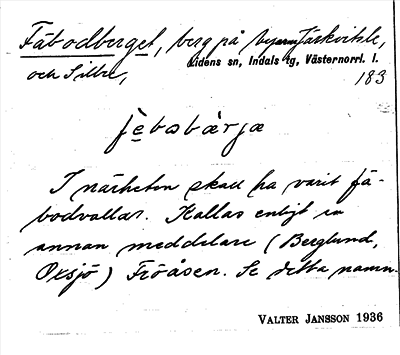 Fäbodberget, berg på byarna Järkvitsle,
Lidens sn, Indals tg, Västernorrl. l.
och Sillre,
183
I närheten skall ha varit fä-
bodvallar. Kallas enligt en
annan meddelare (Berglund,
Oxsjö) Fröåsen. Se detta namn.
VALTER JANSSON 1936